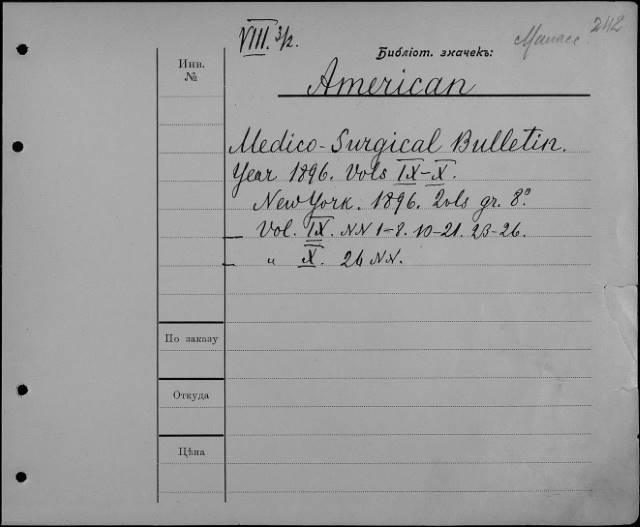 VIII. 3/2.
242
Библіот. значекъ:
Инв.
№
American
Medico-Surgical Bulletin.
Year 1896. Vols IX-X.
New York. 1896. 2ols gr. 8°
Vol. IX. NN 1-8. 10-21. 23-26.
" X. 26 NN.
По заказу
Откуда
Цѣна